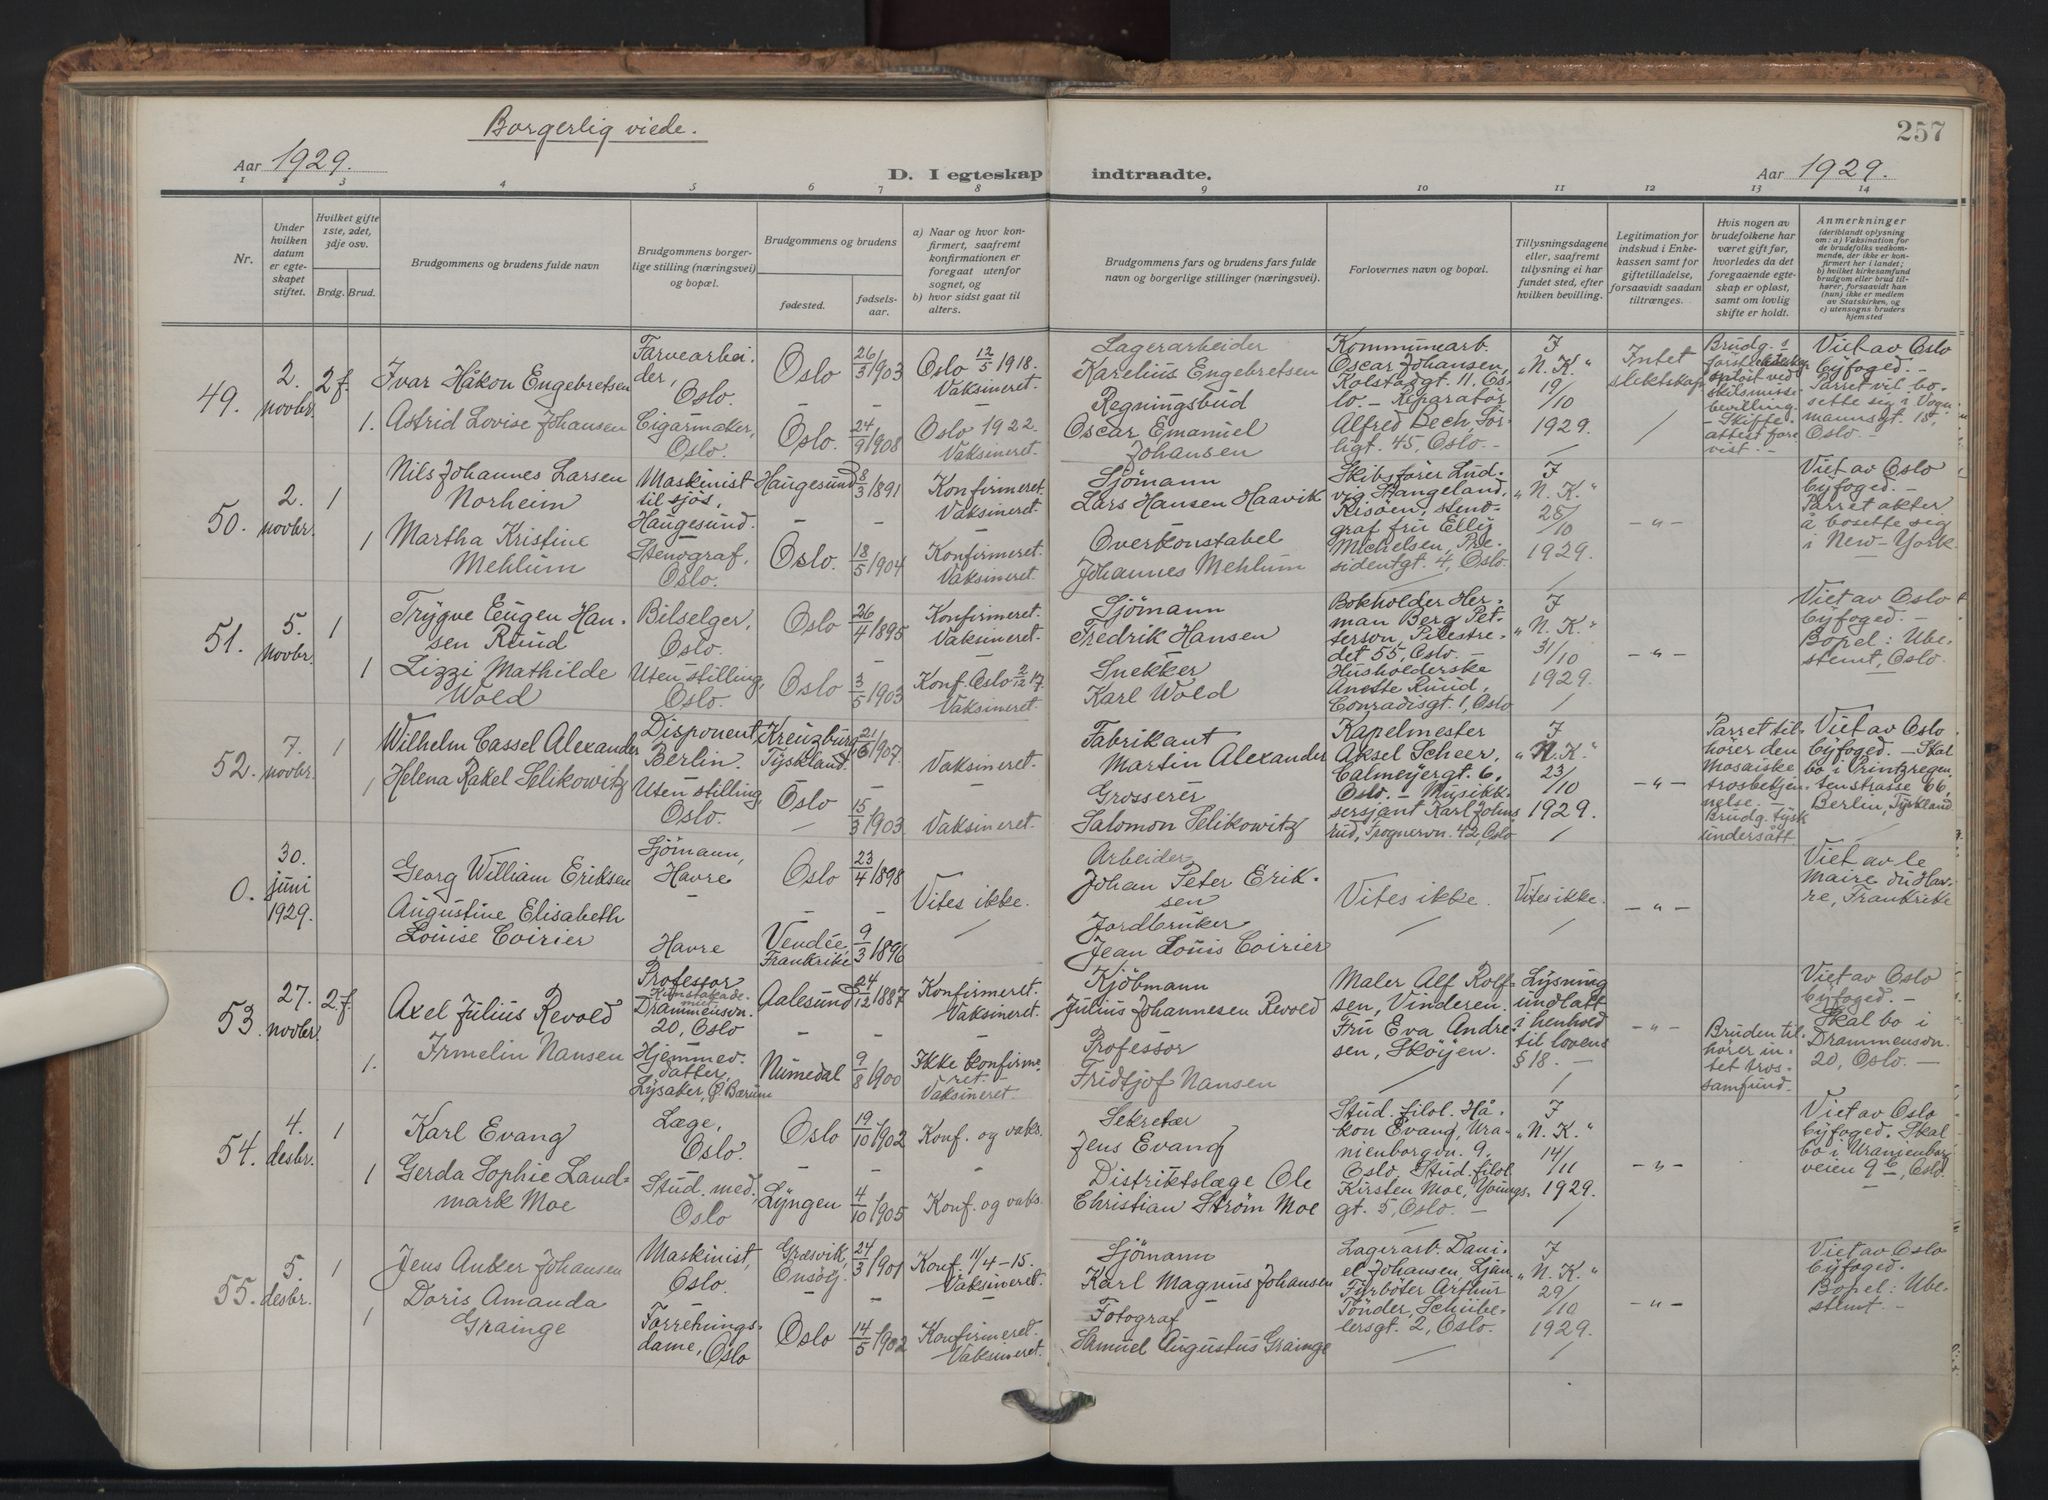 Borgerlig viede.
257
Aar 1929.
D. I egteskap indtraadte.
Aar 1929.
1 2 3 4 5 6 7 8 9 10 11 12 13 14
Nr.
Under hvilken datum er egteskapet stiftet.
Hvilket gifte 1ste, 2det, 3dje osv.
Brdg. Brud.
Brudgommens og brudens fulde navn
Brudgommens borgerlige stilling (næringsvei) og bopæl.
Brudgommens og brudens
fødested.
fødselsaar.
a) Naar og hvor konfirmert, saafremt konfirmationen er foregaat utenfor sognet, og
b) hvor sidst gaat til alters.
Brudgommens fars og brudens fars fulde navn og borgerlige stillinger (næringsvei).
Forlovernes navn og bopæl.
Tillysningsdagene eller, saafremt tillysning ei har fundet sted, efter hvilken bevilling.
Legitimation for indskud i Enkekassen samt for giftetilladelse, forsaavidt saadan tiltrænges.
Hvis nogen av brudefolkene har været gift før, hvorledes da det foregaaende egteskap er opløst, samt om lovlig skifte er holdt.
Anmerkninger
(deriblandt oplysning om: a) Vaksination for de brudefolks vedkommende, der ikke er konfirmert her i landet; b) hvilket kirkesamfund brudgom eller brud tilhører, forsaavidt han (hun) ikke er medlem av Statskirken, og c) utensogns bruders hjemsted
49.
2. novbr.
2 f.
Ivar Håkon Engebretsen
Farvearbeider, Oslo.
Oslo
26/3 1903
Oslo 12/5 1918. Vaksineret.
Lagerarbeider
Karelius Engebretsen
1.
Astrid Lovise Johansen
Cigarmaker, Oslo.
Oslo.
24/9 1908
Oslo 1922. Vaksineret.
Regningsbud
Oscar Emanuel Johansen
Kommunearb. Oscar Johansen, Kolstadgt. 11, Oslo. – Reparatør Alfred Bech, Sørligt. 45, Oslo. –
I „N. K." 19/10 1929.
Intet slektskap
Brudg.s første opløst ved skilsmissebevilling. – Skifteattest forevist. –
Viet av Oslo byfoged. – Parret vil bosette sig i Vognmannsgt. 15, Oslo. –
50.
2. novbr.
1
Nils Johannes Larsen Norheim
Maskinist til sjøs, Haugesund.
Haugesund
8/3 1891
Konfirmeret. Vaksineret.
Sjømann
Lars Hansen Haavik
1
Martha Kristine Mehlum
Stenograf, Oslo.
Oslo.
18/5 1904
Konfirmeret. Vaksineret.
Overkonstabel
Johannes Mehlum
Skibsfører Ludvig Stangeland, Risøen, stenograf fru Elly Michelsen, Presidentgt. 4, Oslo.
I „N. K." 25/10 1929.
– „ –
Viet av Oslo byfoged. – Parret akter å bosette sig i New-York.
51.
5. novbr.
1
Trygve Eugen Hansen Ruud
Bilselger, Oslo.
Oslo
26/4 1895
Konfirmeret. Vaksineret.
Sjømann
Fredrik Hansen
1
Lizzi Mathilde Wold
Uten stilling, Oslo.
Oslo
3/5 1903
Konf. Oslo 2/12 17. Vaksineret.
Snekker
Karl Wold
Bokholder Herman Berg Petterson, Pilestredet 55, Oslo. – Husholderske Anette Ruud, Conradisgt. 1, Oslo
I „N. K." 31/10 1929.
– „ –
Viet av Oslo byfoged. – Bopel: Ubestemt, Oslo.
52.
7. novbr.
1
Wilhelm Cassel Alexander
Disponent, Berlin.
Kreuzburg, Tyskland.
21/6 1907.
Vaksineret.
Fabrikant
Martin Alexander
1
Helena Rakel Selikowitz
Uten stilling, Oslo.
Oslo
15/3 1903
Vaksineret.
Grosserer
Salomon Selikowitz
Kapelmester Aksel Scheer, Calmeyergt. 6, Oslo. – Musikksersjant Karl Johnsrud, Frognervn. 42, Oslo
I „N. K." 23/10 1929.
– „ –
Parret tilhører den Mosaiske trosbekjennelse. – Brudg. tysk undersått
Viet av Oslo byfoged. – Skal bo i Printzregentenstrasse 66, Berlin, Tyskland
0.
30. juni 1929.
Georg William Eriksen
Sjømann, Havre
Oslo
23/4 1898
Vites ikke.
Arbeider
Johan Peter Eriksen
Augustine Elisabeth Louise Coirier
Havre
Vendée, Frankrike
9/3 1896
Jordbruker
Jean Louis Coirier
Vites ikke.
Vites ikke.
– „ –
Viet av le Maire du Havre, Frankrike
53.
27. novbr.
2 f.
Axel Julius Revold
Professor Kunstakademiet Drammensvn. 20, Oslo
Aalesund
24/12 1887
Konfirmeret. Vaksineret.
Kjøbmann
Julius Johannesen Revold
1.
Irmelin Nansen
Hjemmev. datter, Lysaker, Ø. Bærum
Numedal
9/8 1900
Ikke konfirmeret. – Vaksineret.
Professor
Fridtjof Nansen
Maler Alf Rolfsen, Vinderen. Fru Eva Andresen, Skøyen.
Lysning undlatt i henhold til lovens § 18. –
– „ –
Bruden tilhører intet trossamfund.
Viet av Oslo byfoged. – Skal bo i Drammensvn. 20, Oslo. –
54.
4. desbr.
1
Karl Evang
Læge, Oslo.
Oslo
19/10 1902
Konf. og vaks.
Sekretær
Jens Evang
1
Gerda Sophie Landmark Moe
Stud. med. Oslo
Lyngen
4/10 1905
Konf. og vaks.
Distriktslæge Ole Christian Strøm Moe
Stud. filol. Håkon Evang, Uranienborgvn. 9, Oslo. Stud. filol. Kirsten Moe, Youngsgt. 5, Oslo. –
I „N. K." 14/11 1929.
– „ –
Viet av Oslo byfoged. Skal bo i Uranienborgveien 9 b, Oslo.
55.
5. desbr.
1
Jens Anker Johansen
Maskinist, Oslo.
Græsvik, Onsøy.
24/3 1901
Konf. 11/4–15. Vaksineret.
Sjømann
Karl Magnus Johansen
1
Doris Amanda Grainge
Forretnings-dame, Oslo
Oslo
14/5 1902
Konfirmeret. Vaksineret.
Fotograf
Samuel Augustus Grainge
Lagerarb. Daniel Johansen, Ljan, Fyrbøter Arthur Tønder, Schübelersgt. 2, Oslo.
I „N. K." 29/10 1929.
– „ –
Viet av Oslo byfoged. Bopel: Ubestemt. –